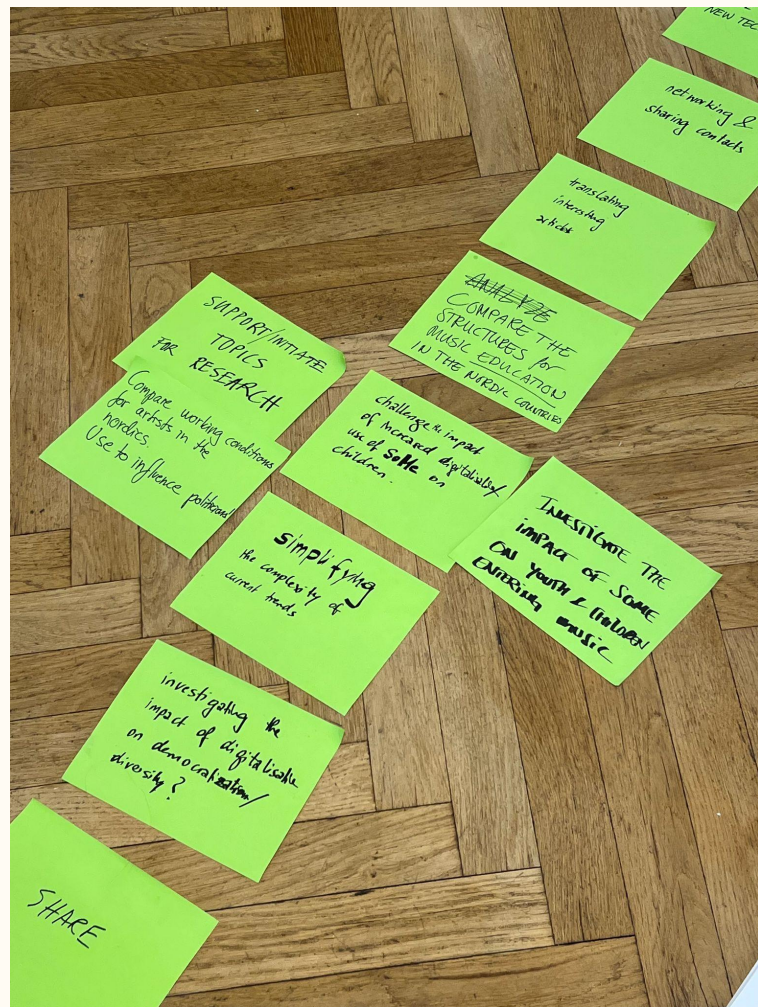 NEW TEC
networking &
sharing contacts
translating
interesting
articles
COMPARE THE
STRUCTURES for
MUSIC EDUCATION
IN THE NORDIC COUNTRIES
SUPPORT/INTIATE
TOPICS
FOR RESEARCH
Compare working conditions
for artists in the
nordics.
Use to influence
challenge impact
of increased
use of SoMe on
children.
INVESTIGATE THE
IMPACT OF SOME
ON YOUTH & CHILDREN
ENTERING MUSIC
simplifying
the complexity of
current trends
investigating the
impact of
on democratization/
diversity?
SHARE